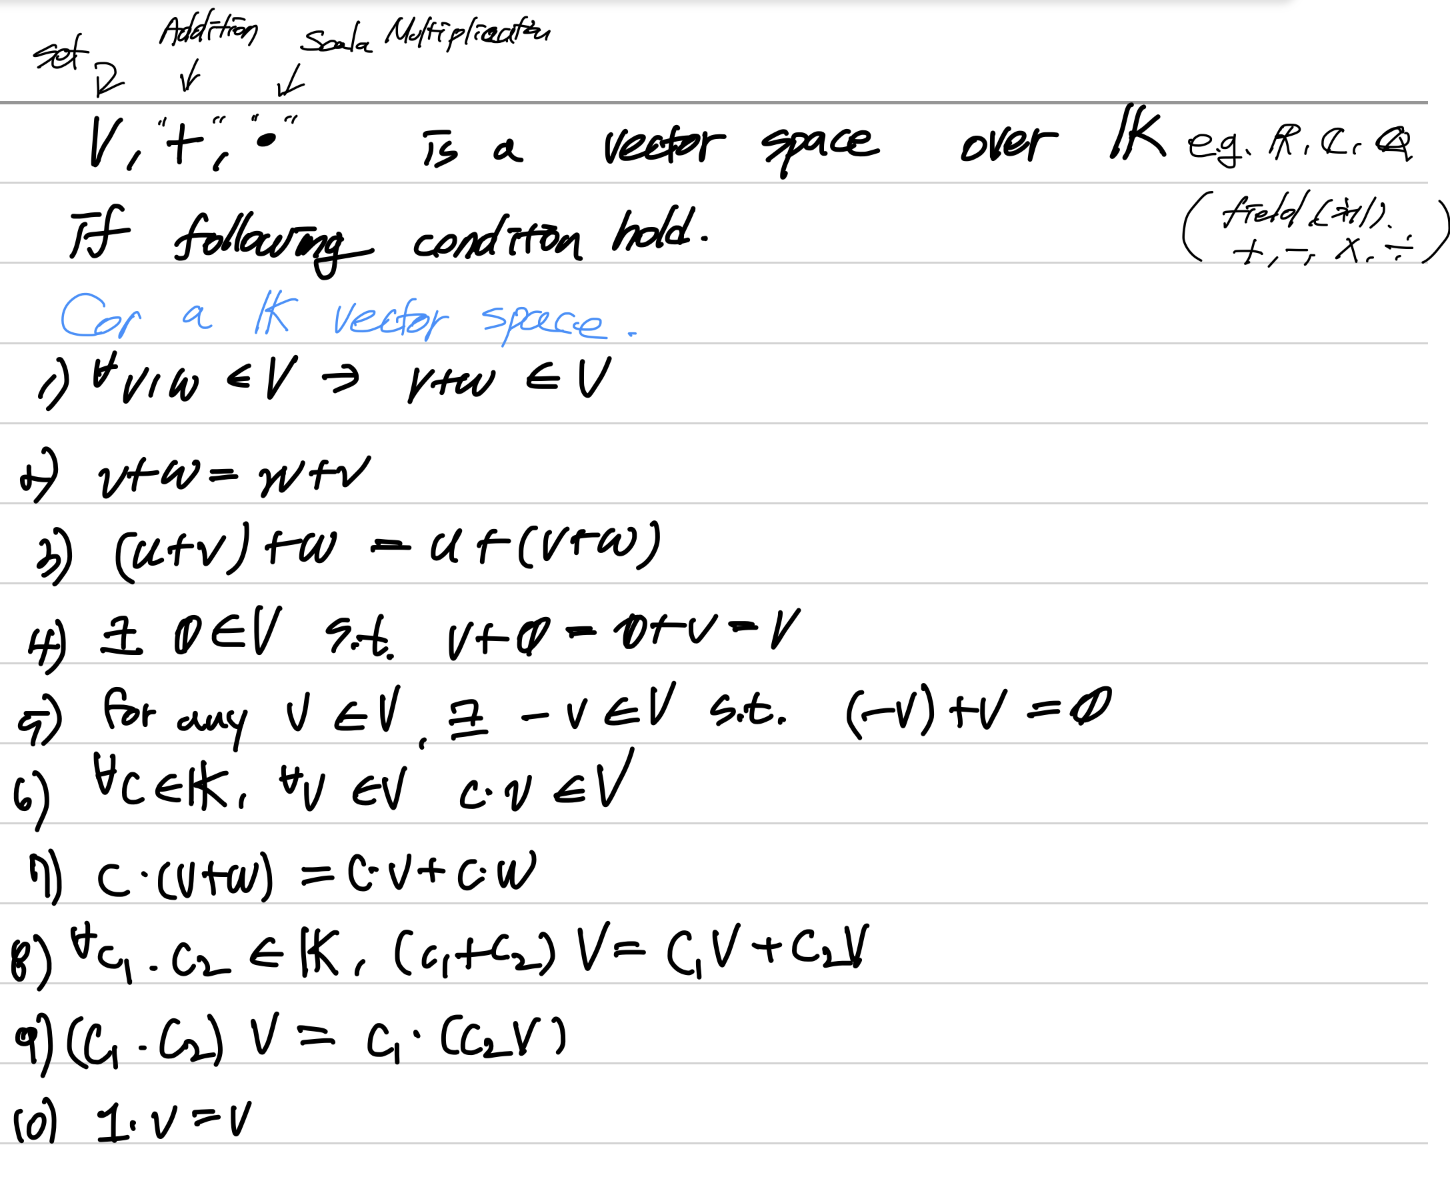 set Addition Scala Multiplication
V, "+", "•" is a vector space over 𝕂 e.g. ℝ, ℂ, ℚ
if following conditon hold. (field (체). +, -, ×, ÷)
(or a 𝕂 vector space.
1) ∀v, w ∈ V → v+w ∈ V
2) v+w = w+v
3) (u+v)+w = u+(v+w)
4) ∃ 0 ∈ V s.t. v+0 = 0+v = V
5) for any v ∈ V, ∃ -v ∈ V s.t. (-v)+v = 0
6) ∀c ∈ 𝕂, ∀v ∈ V c·v ∈ V
7) c·(v+w) = c·v+c·w
8) ∀c₁, c₂ ∈ 𝕂, (c₁+c₂) V = c₁V + c₂V
9) (c₁·c₂) V = c₁·(c₂V)
10) 1·v = v